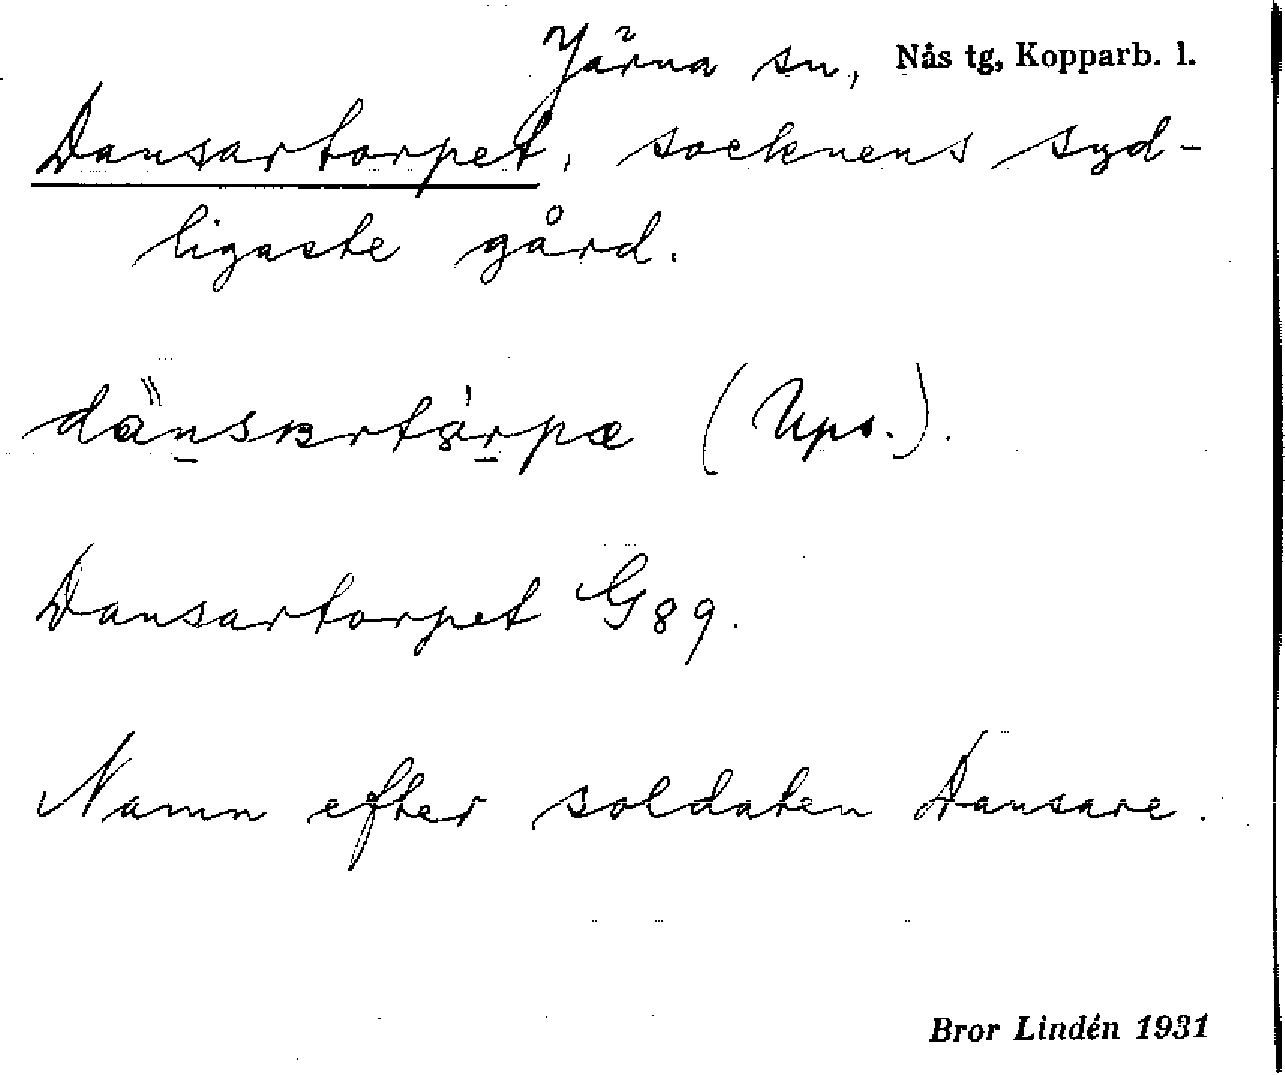 Järna sn, Nås tg, Kopparb. l.
Dansartorpet, socknens syd-
ligaste gård.
(Ups.).
Dansartorpet G89.
Namn efter soldaten Dansare.
Bror Lindén 1931